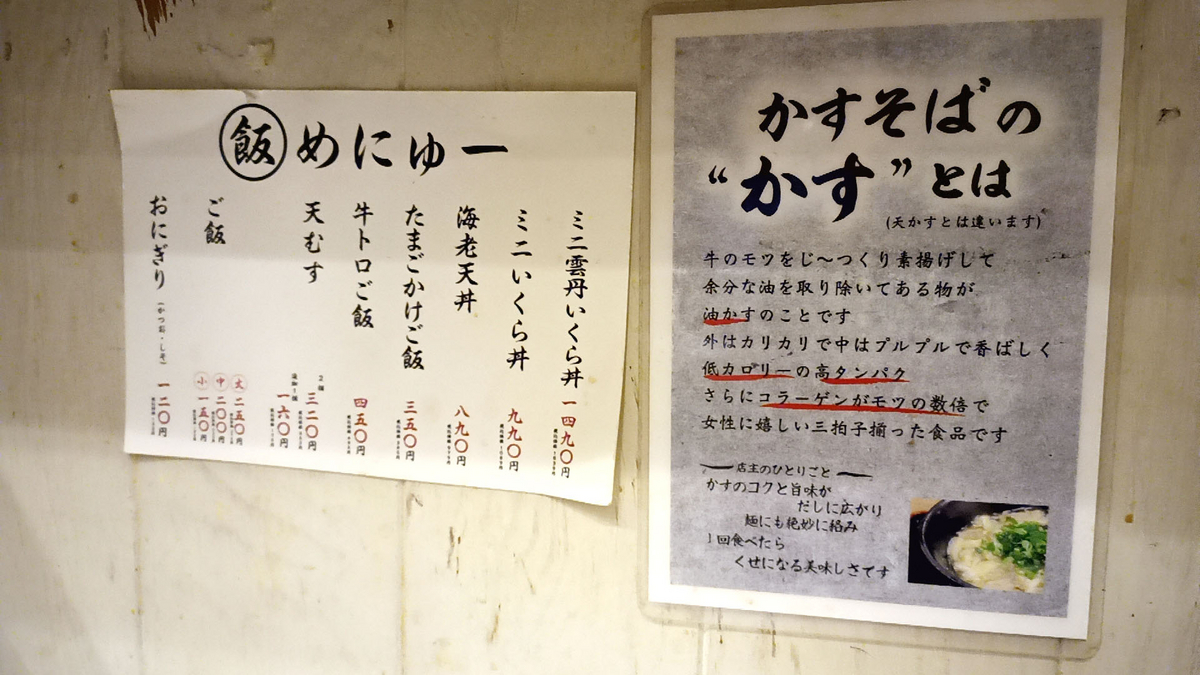 飯めにゅー
ミニ雲丹いくら丼 一四九〇円
ミニいくら丼 九九〇円
海老天丼 八九〇円
たまごかけご飯 三五〇円
牛トロご飯 四五〇円
天むす 2個 三二〇円
追加1個 一六〇円
ご飯 大 二五〇円
中 二〇〇円
小 一五〇円
おにぎり(かつお・しそ) 一二〇円
かすそばの
“かす”とは
(天かすとは違います)
牛のモツをじ〜つくり素揚げして
余分な油を取り除いてある物が
油かすのことです
外はカリカリで中はプルプルで香ばしく
低カロリーの高タンパク
さらにコラーゲンがモツの数倍で
女性に嬉しい三拍子揃った食品です
店主のひとりごと
かすのコクと旨味が
だしに広がり
麺にも絶妙に絡み
1回食べたら
くせになる美味しさです